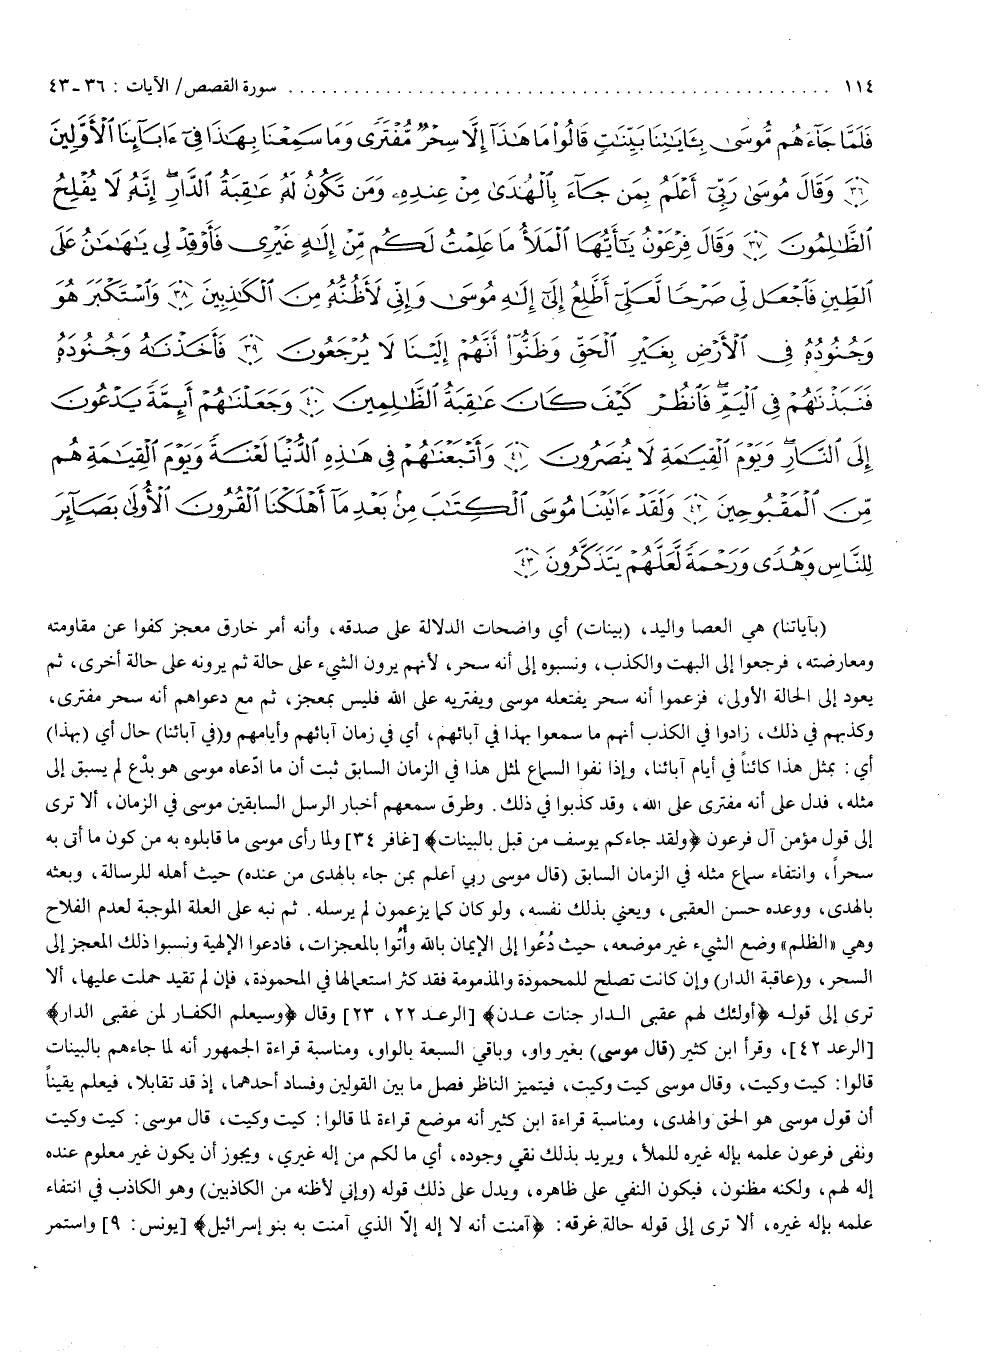 ١١٤ ............................................................ سورة القصص/ الآيات : ٣٦ـ٤٣
فَلَمَّا جَآءَهُم مُّوسَىٰ بِـَٔايَـٰتِنَا بَيِّنَـٰتٍ قَالُوا۟ مَا هَـٰذَآ إِلَّا سِحْرٌ مُّفْتَرًى وَمَا سَمِعْنَا بِهَـٰذَا فِىٓ ءَابَآئِنَا ٱلْأَوَّلِينَ
﴿٣٦﴾ وَقَالَ مُوسَىٰ رَبِّىٓ أَعْلَمُ بِمَن جَآءَ بِٱلْهُدَىٰ مِنْ عِندِهِۦ وَمَن تَكُونُ لَهُۥ عَـٰقِبَةُ ٱلدَّارِ ۖ إِنَّهُۥ لَا يُفْلِحُ
ٱلظَّـٰلِمُونَ ﴿٣٧﴾ وَقَالَ فِرْعَوْنُ يَـٰٓأَيُّهَا ٱلْمَلَأُ مَا عَلِمْتُ لَكُم مِّنْ إِلَـٰهٍ غَيْرِى فَأَوْقِدْ لِى يَـٰهَـٰمَـٰنُ عَلَى
ٱلطِّينِ فَٱجْعَل لِّى صَرْحًا لَّعَلِّىٓ أَطَّلِعُ إِلَىٰٓ إِلَـٰهِ مُوسَىٰ وَإِنِّى لَأَظُنُّهُۥ مِنَ ٱلْكَـٰذِبِينَ ﴿٣٨﴾ وَٱسْتَكْبَرَ هُوَ
وَجُنُودُهُۥ فِى ٱلْأَرْضِ بِغَيْرِ ٱلْحَقِّ وَظَنُّوٓا۟ أَنَّهُمْ إِلَيْنَا لَا يُرْجَعُونَ ﴿٣٩﴾ فَأَخَذْنَـٰهُ وَجُنُودَهُۥ
فَنَبَذْنَـٰهُمْ فِى ٱلْيَمِّ ۖ فَٱنظُرْ كَيْفَ كَانَ عَـٰقِبَةُ ٱلظَّـٰلِمِينَ ﴿٤٠﴾ وَجَعَلْنَـٰهُمْ أَئِمَّةً يَدْعُونَ
إِلَى ٱلنَّارِ ۖ وَيَوْمَ ٱلْقِيَـٰمَةِ لَا يُنصَرُونَ ﴿٤١﴾ وَأَتْبَعْنَـٰهُمْ فِى هَـٰذِهِ ٱلدُّنْيَا لَعْنَةً وَيَوْمَ ٱلْقِيَـٰمَةِ هُم
مِّنَ ٱلْمَقْبُوحِينَ ﴿٤٢﴾ وَلَقَدْ ءَاتَيْنَا مُوسَى ٱلْكِتَـٰبَ مِنۢ بَعْدِ مَآ أَهْلَكْنَا ٱلْقُرُونَ ٱلْأُولَىٰ بَصَآئِرَ
لِلنَّاسِ وَهُدًى وَرَحْمَةً لَّعَلَّهُمْ يَتَذَكَّرُونَ ﴿٤٣﴾
(بآياتنا) هي العصا واليد، (بينات) أي واضحات الدلالة على صدقه، وأنه أمر خارق معجز كفوا عن مقاومته
ومعارضته، فرجعوا إلى البهت والكذب، ونسبوه إلى أنه سحر، لأنهم يرون الشيء على حالة ثم يرونه على حالة أخرى، ثم
يعود إلى الحالة الأولى، فزعموا أنه سحر يفتعله موسى ويفتريه على الله فليس بمعجز، ثم مع دعواهم أنه سحر مفترى،
وكذبهم في ذلك، زادوا في الكذب أنهم ما سمعوا بهذا في آبائهم، أي في زمان آبائهم وأيامهم و(في آبائنا) حال أي (بهذا)
أي: بمثل هذا كائناً في أيام آبائنا، وإذا نفوا السماع لمثل هذا في الزمان السابق ثبت أن ما ادّعاه موسى هو بدْع لم يسبق إلى
مثله، فدل على أنه مفترى على الله، وقد كذبوا في ذلك. وطرق سمعهم أخبار الرسل السابقين موسى في الزمان، ألا ترى
إلى قول مؤمن آل فرعون ﴿ولقد جاءكم يوسف من قبل بالبينات﴾ [غافر ٣٤] ولما رأى موسى ما قابلوه به من كون ما أتى به
سحراً، وانتفاء سماع مثله في الزمان السابق (قال موسى ربي أعلم بمن جاء بالهدى من عنده) حيث أهله للرسالة، وبعثه
بالهدى، ووعده حسن العقبى، ويعني بذلك نفسه، ولو كان كما يزعمون لم يرسله. ثم نبه على العلة الموجبة لعدم الفلاح
وهي «الظلم» وضع الشيء غير موضعه، حيث دُعُوا إلى الإيمان بالله وأُتُوا بالمعجزات، فادعوا الإلهية ونسبوا ذلك المعجز إلى
السحر، و(عاقبة الدار) وإن كانت تصلح للمحمودة والمذمومة فقد كثر استعمالها في المحمودة، فإن لم تقيد حملت عليها، ألا
ترى إلى قوله ﴿أولئك لهم عقبى الدار جنات عدن﴾ [الرعد ٢٢، ٢٣] وقال ﴿وسيعلم الكفار لمن عقبى الدار﴾
[الرعد ٤٢]، وقرأ ابن كثير (قال موسى) بغير واو، وباقي السبعة بالواو، ومناسبة قراءة الجمهور أنه لما جاءهم بالبينات
قالوا: كيت وكيت، وقال موسى كيت وكيت، فيتميز الناظر فصل ما بين القولين وفساد أحدهما، إذ قد تقابلا، فيعلم يقيناً
أن قول موسى هو الحق والهدى، ومناسبة قراءة ابن كثير أنه موضع قراءة لما قالوا: كيت وكيت، قال موسى: كيت وكيت
ونفى فرعون علمه بإله غيره للملأ، ويريد بذلك نفي وجوده، أي ما لكم من إله غيري، ويجوز أن يكون غير معلوم عنده
إله لهم، ولكنه مظنون، فيكون النفي على ظاهره، ويدل على ذلك قوله (وإني لأظنه من الكاذبين) وهو الكاذب في انتفاء
علمه بإله غيره، ألا ترى إلى قوله حالة غرقه: ﴿آمنت أنه لا إله إلّا الذي آمنت به بنو إسرائيل﴾ [يونس: ٩] واستمر